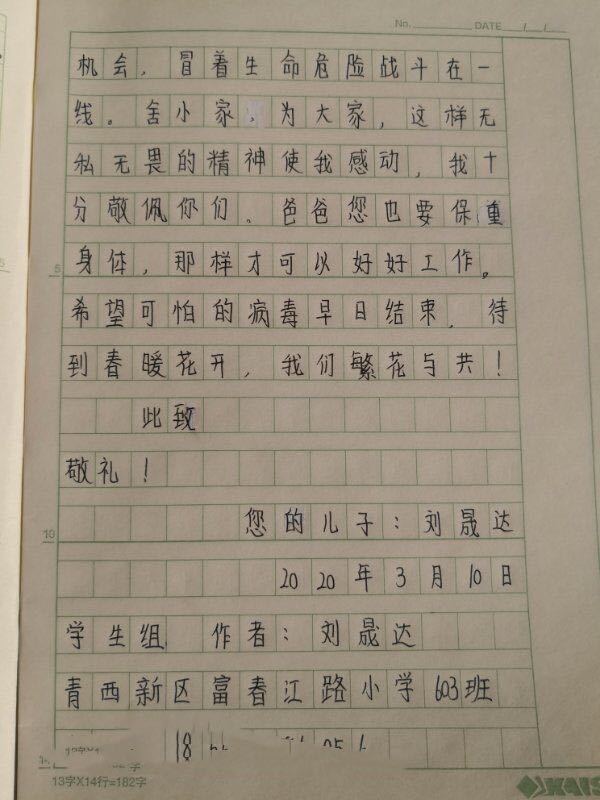 No. DATE / /
机会，冒着生命危险战斗在一
线。舍小家，为大家，这样无
私无畏的精神使我感动，我十
分敬佩你们。爸爸您也要保重
身体，那样才可以好好工作。
5
希望可怕的病毒早日结束，待
到春暖花开，我们繁花与共！
此致
敬礼！
您的儿子：刘晟达
10
2020年3月10日
学生组 作者：刘晟达
青西新区富春江路小学603班
18
13字X14行=182字